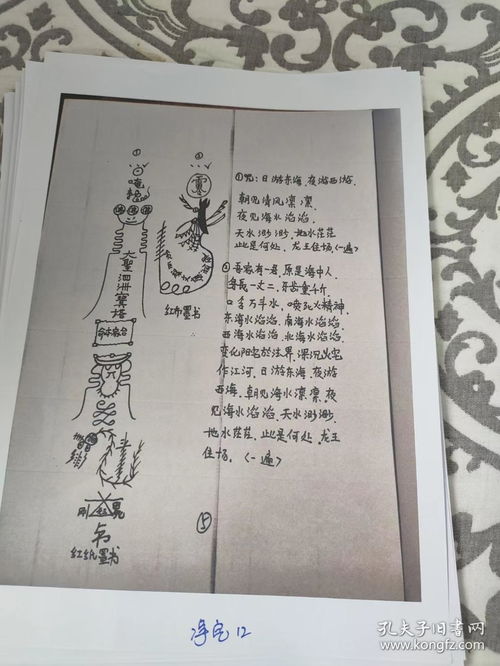 ①
②
唵
大聖泗洲寶塔
紅布墨书
紅纸墨书
①咒：日游东海、夜游西游
朝见清风凛凛
夜见海水滔滔
天水渺渺，地水茫茫
此是何处，龙王住场，(一遍)
②吾家有一君，原是海中人
身長一丈二，牙齿重千斤
口含万斗水，喷死火精神
东海水滔滔，南海水滔滔
西海水滔滔，北海水滔滔
变化阳宅於法界，深沉火宅
作江河，日游东海，夜游
西海，朝见海水凛凛，夜
见海水滔滔，天水渺渺，
地水茫茫，此是何处，龙王
住场。(一遍)
⑤
净宅12
孔夫子旧书网
www.kongfz.com